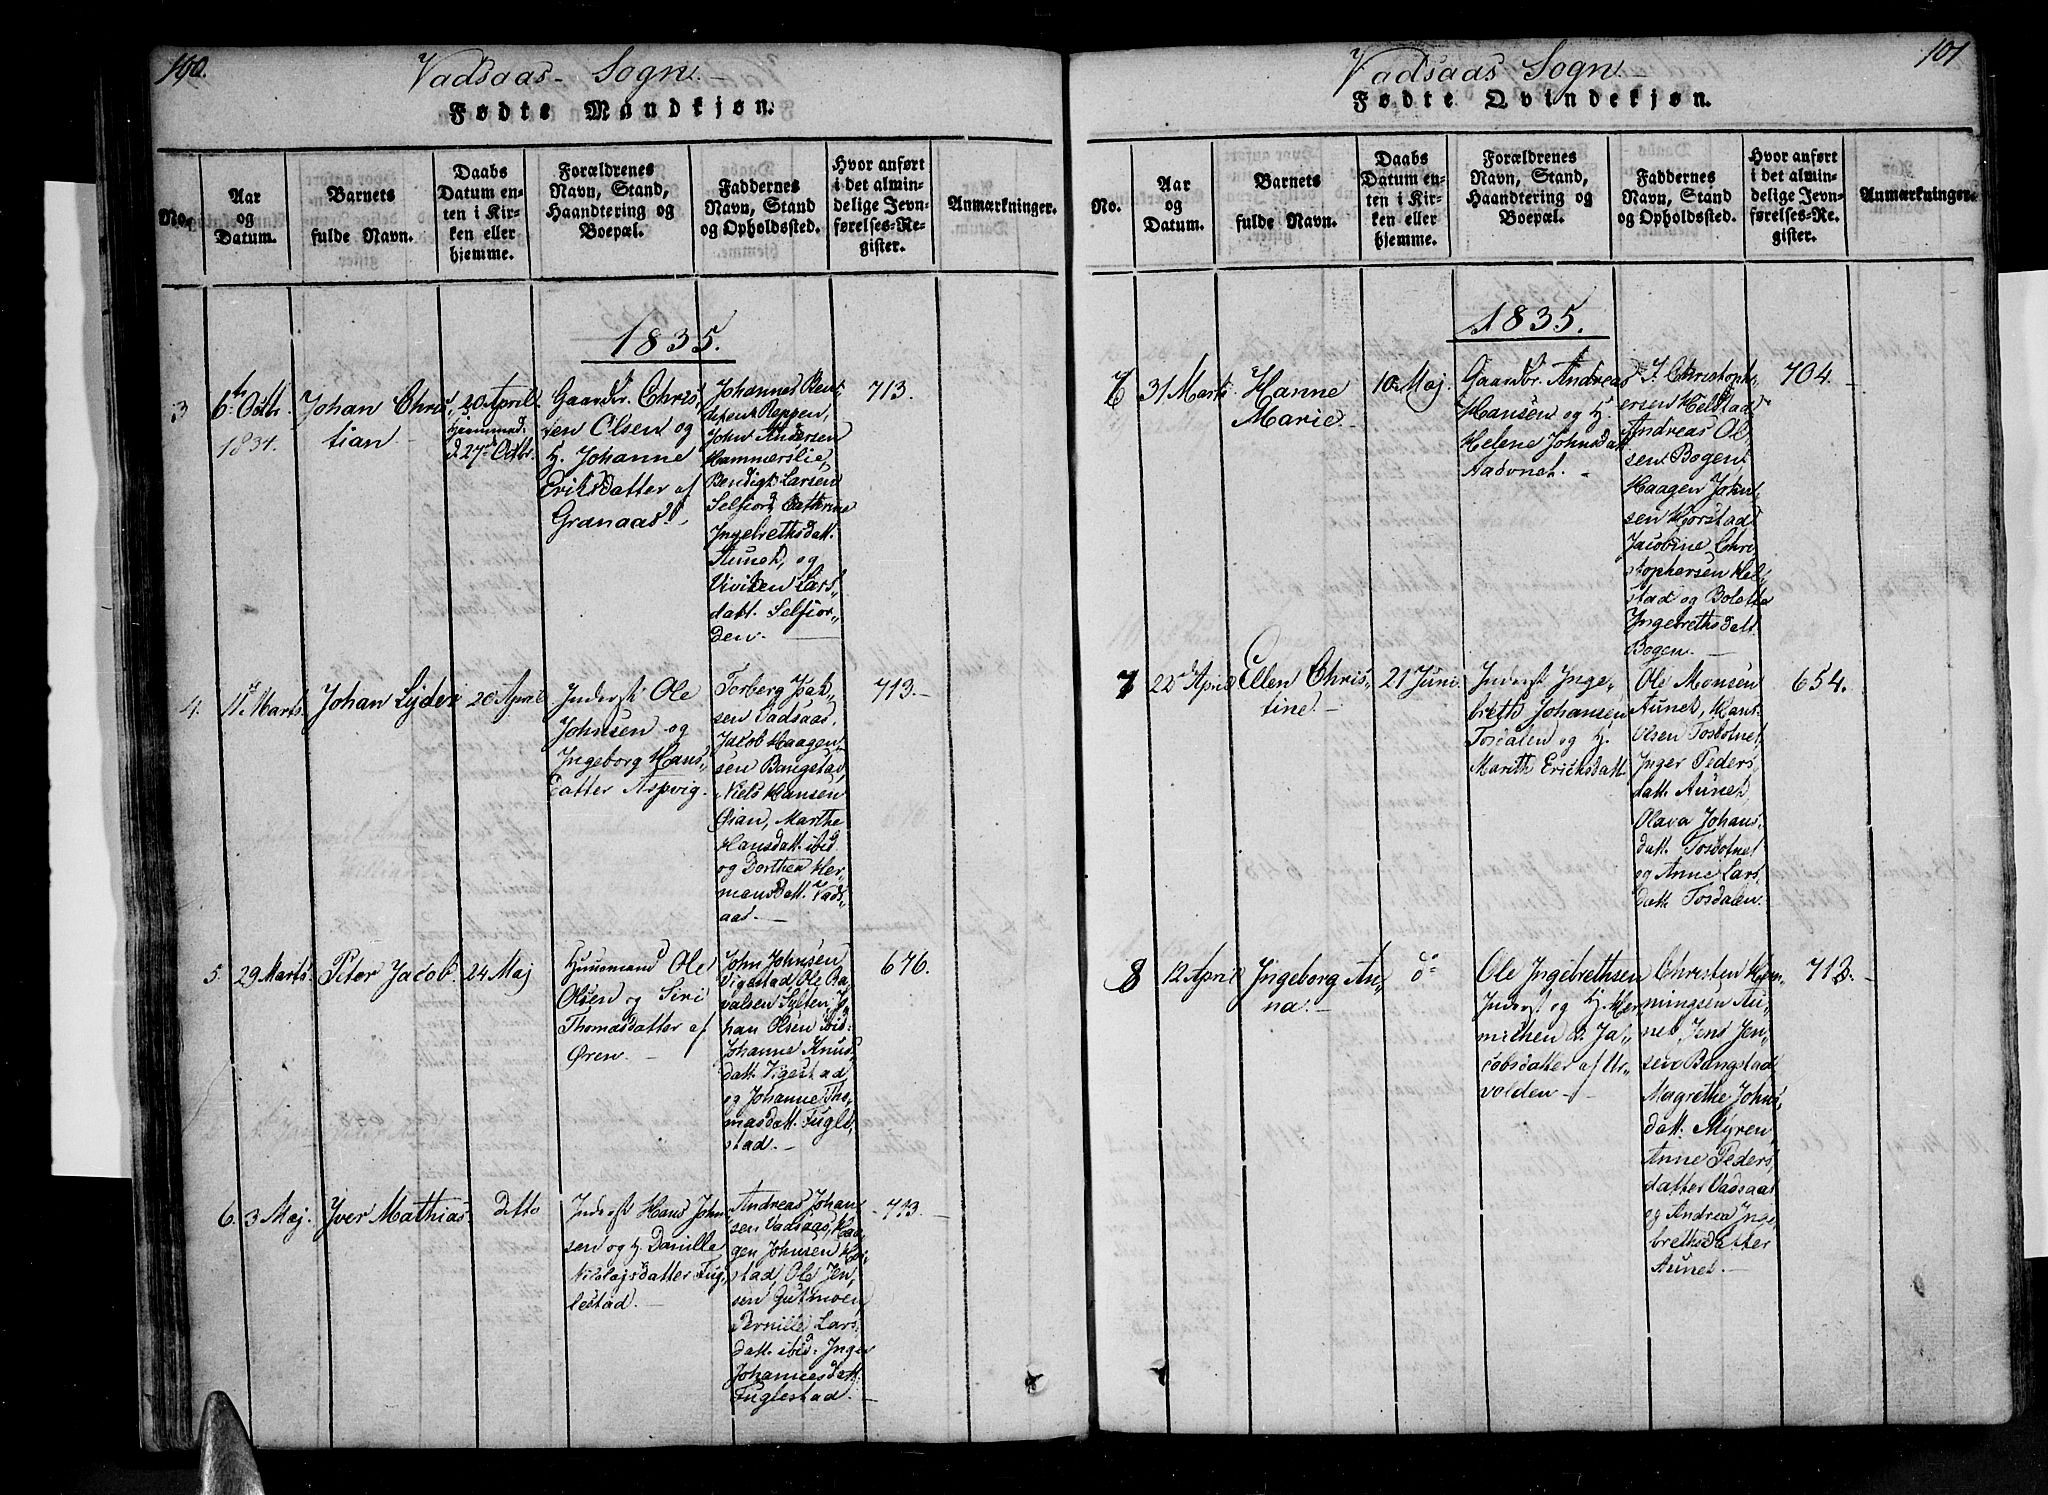 100.
Vadsaas Sogn.
Fødte Mandkjøn.
No.
Aar
og
Datum.
Barnets
fulde Navn.
Daabs
Datum en-
ten i Kir-
ken eller
hjemme.
Forældrenes
Navn, Stand,
Haandtering og
Boepæl.
Faddernes
Navn, Stand
og Opholdssted.
Hvor anført
i det almin-
delige Jevn-
førelses-Re-
gister.
Anmærkninger.
1835.
3
6te Octbr.
1834.
Johan Chris
tian
20 April
hjemmed.
d. 27de Octbr.
Gaardbr. Chris
ten Olsen og
H. Johanne
Eriksdatter af
Granaas.
Johannes Bent
sen Reppen,
John Andersen
Hammerslie,
Bendigt Larsen
Selfiord, Cathrine
Ingebrethsdatt.
Aunet, og
Larsdatt. Selfior-
den.
713.
4.
11te Marts
Johan Lyder
20 April
Inderst Ole
Johnsen og
Ingeborg Hans
datter Aspvig.
Torberg Isak
sen Vadsaas,
Jacob Haagen
sen Bangstad,
Niels Hansen
Øian, Marthe
Hansdatt. ibid.
og Dorthea Her
mansdatt. Vads
aas.
713.
5.
29 Marts
Peter Jacob
24 Maj
Huusmand Ole
Olsen og Siri
Thomasdatter af
Øren.
John Johnsen
Vigestad Ole Pa
valsen Sylten, Jo
han Olsen ibid.
Johanne Knuds
datt. Vigestad
og Johanne Tho
masdatt. Fugle
stad.
676.
6.
3 Maj.
Iver Mathias
Ditto
Inderst Hans John
sen og H. Danille
Nicolajsdatter Fug
lestad.
Andreas Johan
sen Vadsaas, Haa
gen Johnsen Hor
stad, Ole Jen
sen Gutmoen,
Pernille Lars
datt. ibid. Inger
Johannesdatt.
Fuglestad.
713.
101
Vadsaas Sogn.
Fødte Qvindekjøn.
No.
Aar
og
Datum.
Barnets
fulde Navn.
Daabs
Datum en-
ten i Kir-
ken eller
hjemme.
Forældrenes
Navn, Stand,
Haandtering og
Boepæl.
Faddernes
Navn, Stand
og Opholdssted.
Hvor anført
i det almin-
delige Jevn-
førelses-Re-
gister.
Anmærkninger.
1835.
6
31 Marts
Hanne
Marie
10 Maj
Gaardbr. Andreas
Hansen og H.
Helene Johnsdatt.
Christoph
ersen Helstad
Andreas Ol
sen Bogen
Haagen John
sen Horstad
Jacobine Chri
stophersen Hel
stad og Bolette
Ingebrethsdatt.
Bogen.
704.
7
22de April
Ellen Chris
tine
21 Juni
Inderst Inge
breth Johansen
Tosdalen og H.
Mareth Ericksdatt.
Ole Monsen
Aunet, Hans
Olsen Tosbotnet
Inger Peders
datt. Aunet,
Olava Johans
datt. Tosbotnet
og Anne Lars
datt. Tosdalen.
654.
8
12 April
Ingeborg An
na
do
Ole Ingebrethsen
Inderst og H.
Jacobsdatter af Ur
valden
Christen Hem
mingsen Au
net, Jens Jen
sen Bangstad
Magrethe Johns
datt. Myren
Anne Peders
datter Vadsaas
og Andrea Inge
brethsdatter
Aunet.
713.